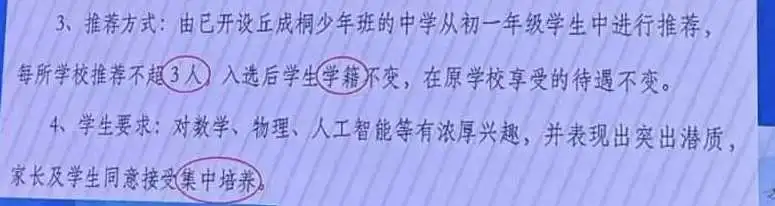 3、推荐方式：由已开设丘成桐少年班的中学从初一年级学生中进行推荐，
每所学校推荐不超3人，入选后学生学籍不变，在原学校享受的待遇不变。
4、学生要求：对数学、物理、人工智能等有浓厚兴趣，并表现出突出潜质，
家长及学生同意接受集中培养。